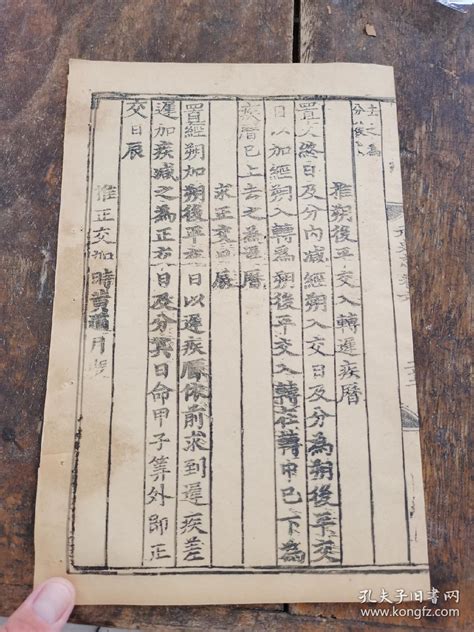 推朔後平交入轉遲疾曆
置交終日及分內減經朔入交日及分為朔後平交
日以加經朔入轉為朔後平交入轉在轉中已下為
疾曆已上去之為遲曆
求正交日辰
置經朔加朔後平交日以遲疾曆依前求到遲疾差
遲加疾減之為正交日及分其日命甲子算外即正
交日辰
推正交加時黃道月
孔夫子旧书网
www.kongfz.com